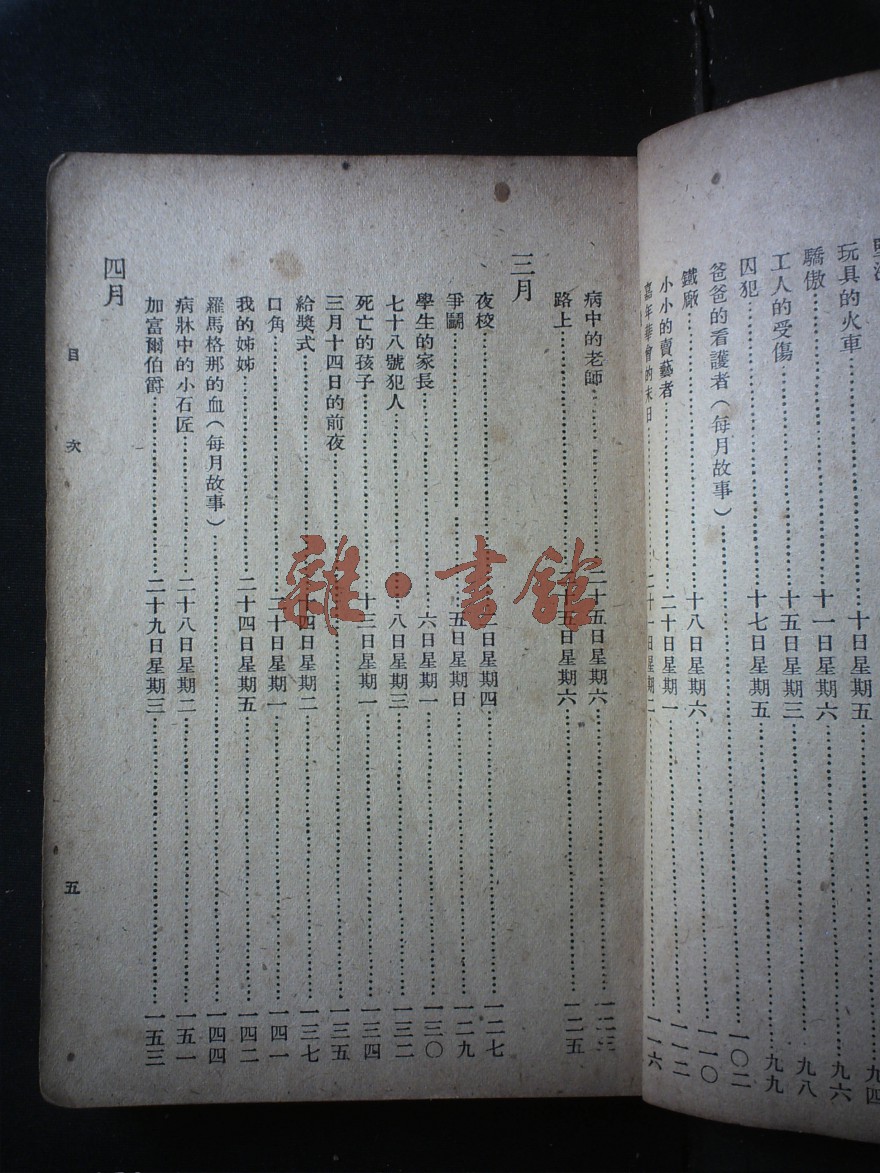 玩具的火車……十日星期五……九四
驕傲……十一日星期六……九六
工人的受傷……十五日星期三……九八
囚犯……十七日星期五……九九
爸爸的看護者(每月故事)……一〇二
鐵廠……十八日星期六……一一〇
小小的賣藝者……二十日星期一……一一二
嘉年華會的末日……二十一日星期二……一一六
病中的老師……二十五日星期六……一二三
路上……二十五日星期六……一二五
三月
夜校……二日星期四……一二七
爭鬭……五日星期日……一二九
學生的家長……六日星期一……一三〇
七十八號犯人……八日星期三……一三二
死亡的孩子……十三日星期一……一三四
三月十四日的前夜……一三五
給獎式……十四日星期二……一三七
口角……二十日星期一……一四一
我的姊姊……二十四日星期五……一四二
羅馬格那的血(每月故事)……一四四
病牀中的小石匠……二十八日星期二……一五一
加富爾伯爵……二十九日星期三……一五三
四月
目次
五
雜·書館